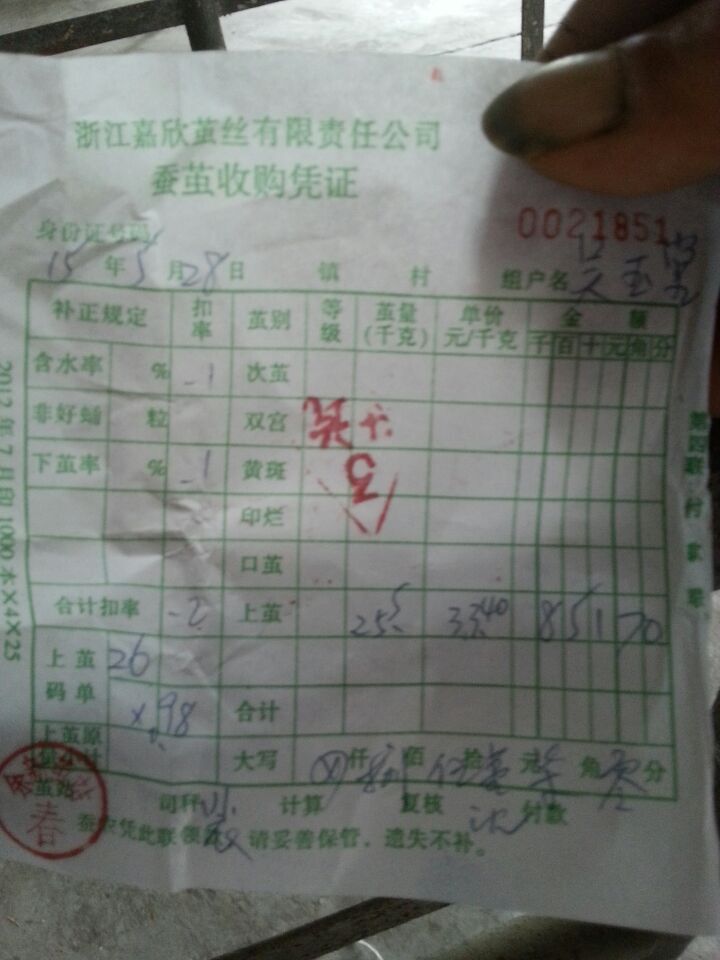 浙江嘉欣茧丝有限责任公司
蚕茧收购凭证
0021851
身份证号码
15年5月28日 镇 村 组户名
补正规定 扣率 茧别 等级 茧量(千克) 单价元/千克 金额
千百十元角分
含水率 % -1 次茧
非好蛹 粒 双宫
下茧率 % -1 黄斑
印烂
口茧
合计扣率 -2 上茧 25.5 33.40 851 70
上茧 26
码单 ×.98 合计
上茧原
大写 仟 佰 拾 元 角 零分
茧站
司秤 计算 复核 付款
春
请妥善保管，遗失不补。
2012年7月印1000本×4×25